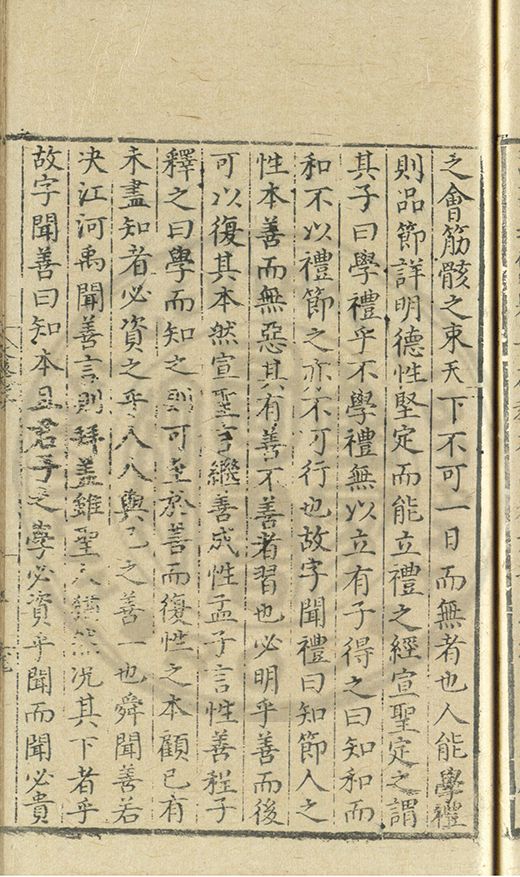 之會筋骸之束天下不可一日而無者也人能學禮
則品節詳明德性堅定而能立禮之經宣聖定之謂
其子曰學禮乎不學禮無以立有子得之曰知和而
和不以禮節之亦不可行也故字聞禮曰知節人之
性本善而無惡其有善不善者習也必明乎善而後
可以復其本然宣聖言繼善成性孟子言性善程子
釋之曰學而知之則可至於善而復性之本顧已有
未盡知者必資之乎人人與己之善一也舜聞善若
決江河禹聞善言則拜蓋雖聖人猶然況其下者乎
故字聞善曰知本且君子之學必資乎聞而聞必貴